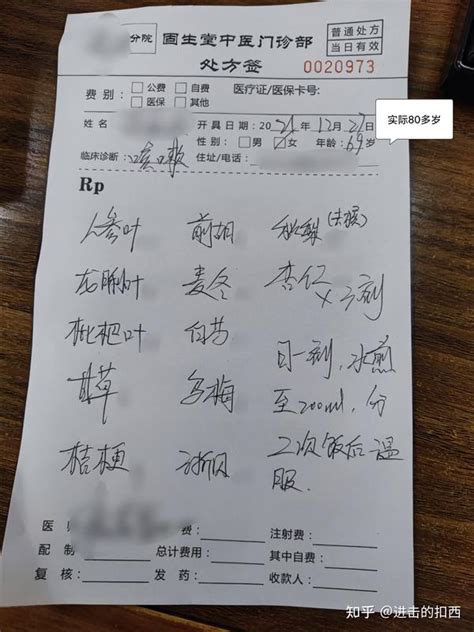 分院 固生堂中医门诊部 普通处方
处方签 当日有效
0020973
费别: □公费 □自费 医疗证/医保卡号:
□医保 □其他
实际80多岁
姓名 开具日期:2021年12月27日
性别:□男 ☑女 年龄:69岁
临床诊断: 咳嗽 住址/电话:
Rp
人参叶 前胡 秋梨(去核)
龙脷叶 麦冬 杏仁
x 3剂
枇杷叶 白芍 日一剂,水煎
甘草 乌梅 至200ml,分
桔梗 浙贝 2次饭后温
服.
医 费: 注射费:
配制 总计费用: 其中自费:
复核: 发药: 收款人:
知乎 @进击的扣西